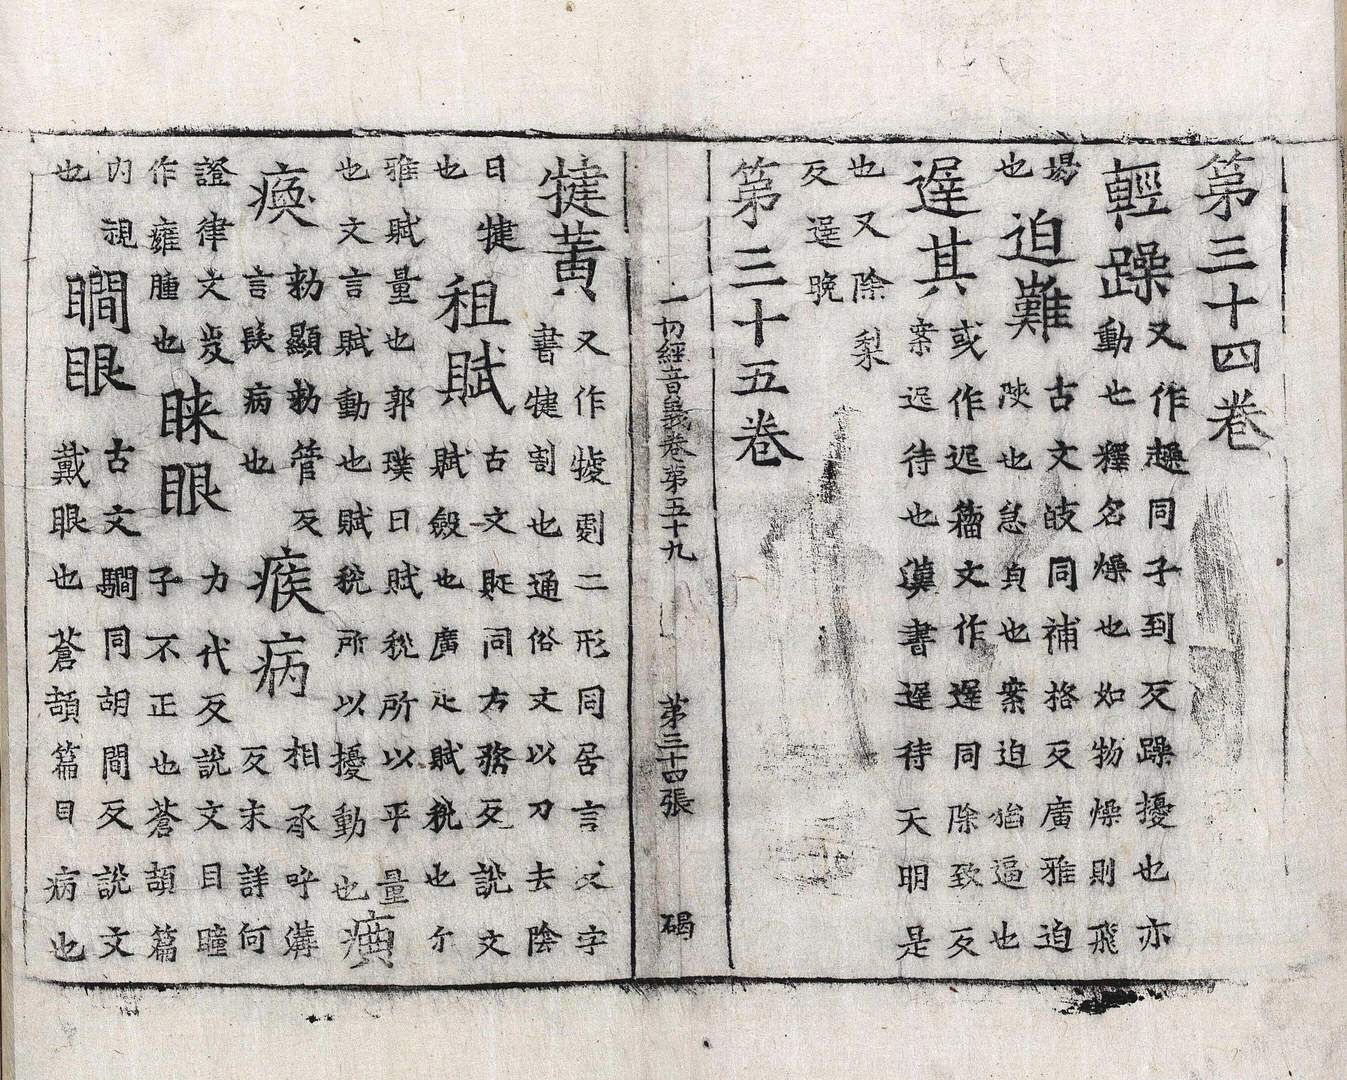 第三十四卷
輕躁又作趮同子到反躁擾也亦
動也釋名燥也如物燥則飛
揚
也
迫難古文敀同補格反廣雅迫
陜也急皃也案迫猶逼也
遟其或作迟籀文作遟同除致反
案迟待也漢書遟待天明是
也又除梨
反遟晩
第三十五卷
一切經音義卷第五十九 第三十四張 碣
犍黃又作㹇劇二形同居言反字
書犍割也通俗文以刀去陰
曰犍
也
租賦古文䝾同方務反說文
賦斂也廣疋賦稅也尒
雅賦量也郭璞曰賦稅所以平量
也文言賦動也賦稅所以擾動也癀
瘓勑顯勑管反
言㿇病也
瘊病相承呼溝
反未詳何
證律文𡻕
作癰腫也
睞眼力代反說文目瞳
子不正也蒼頡篇
內視
也
瞷眼古文䮗同胡間反說文
戴眼也蒼頡篇目病也